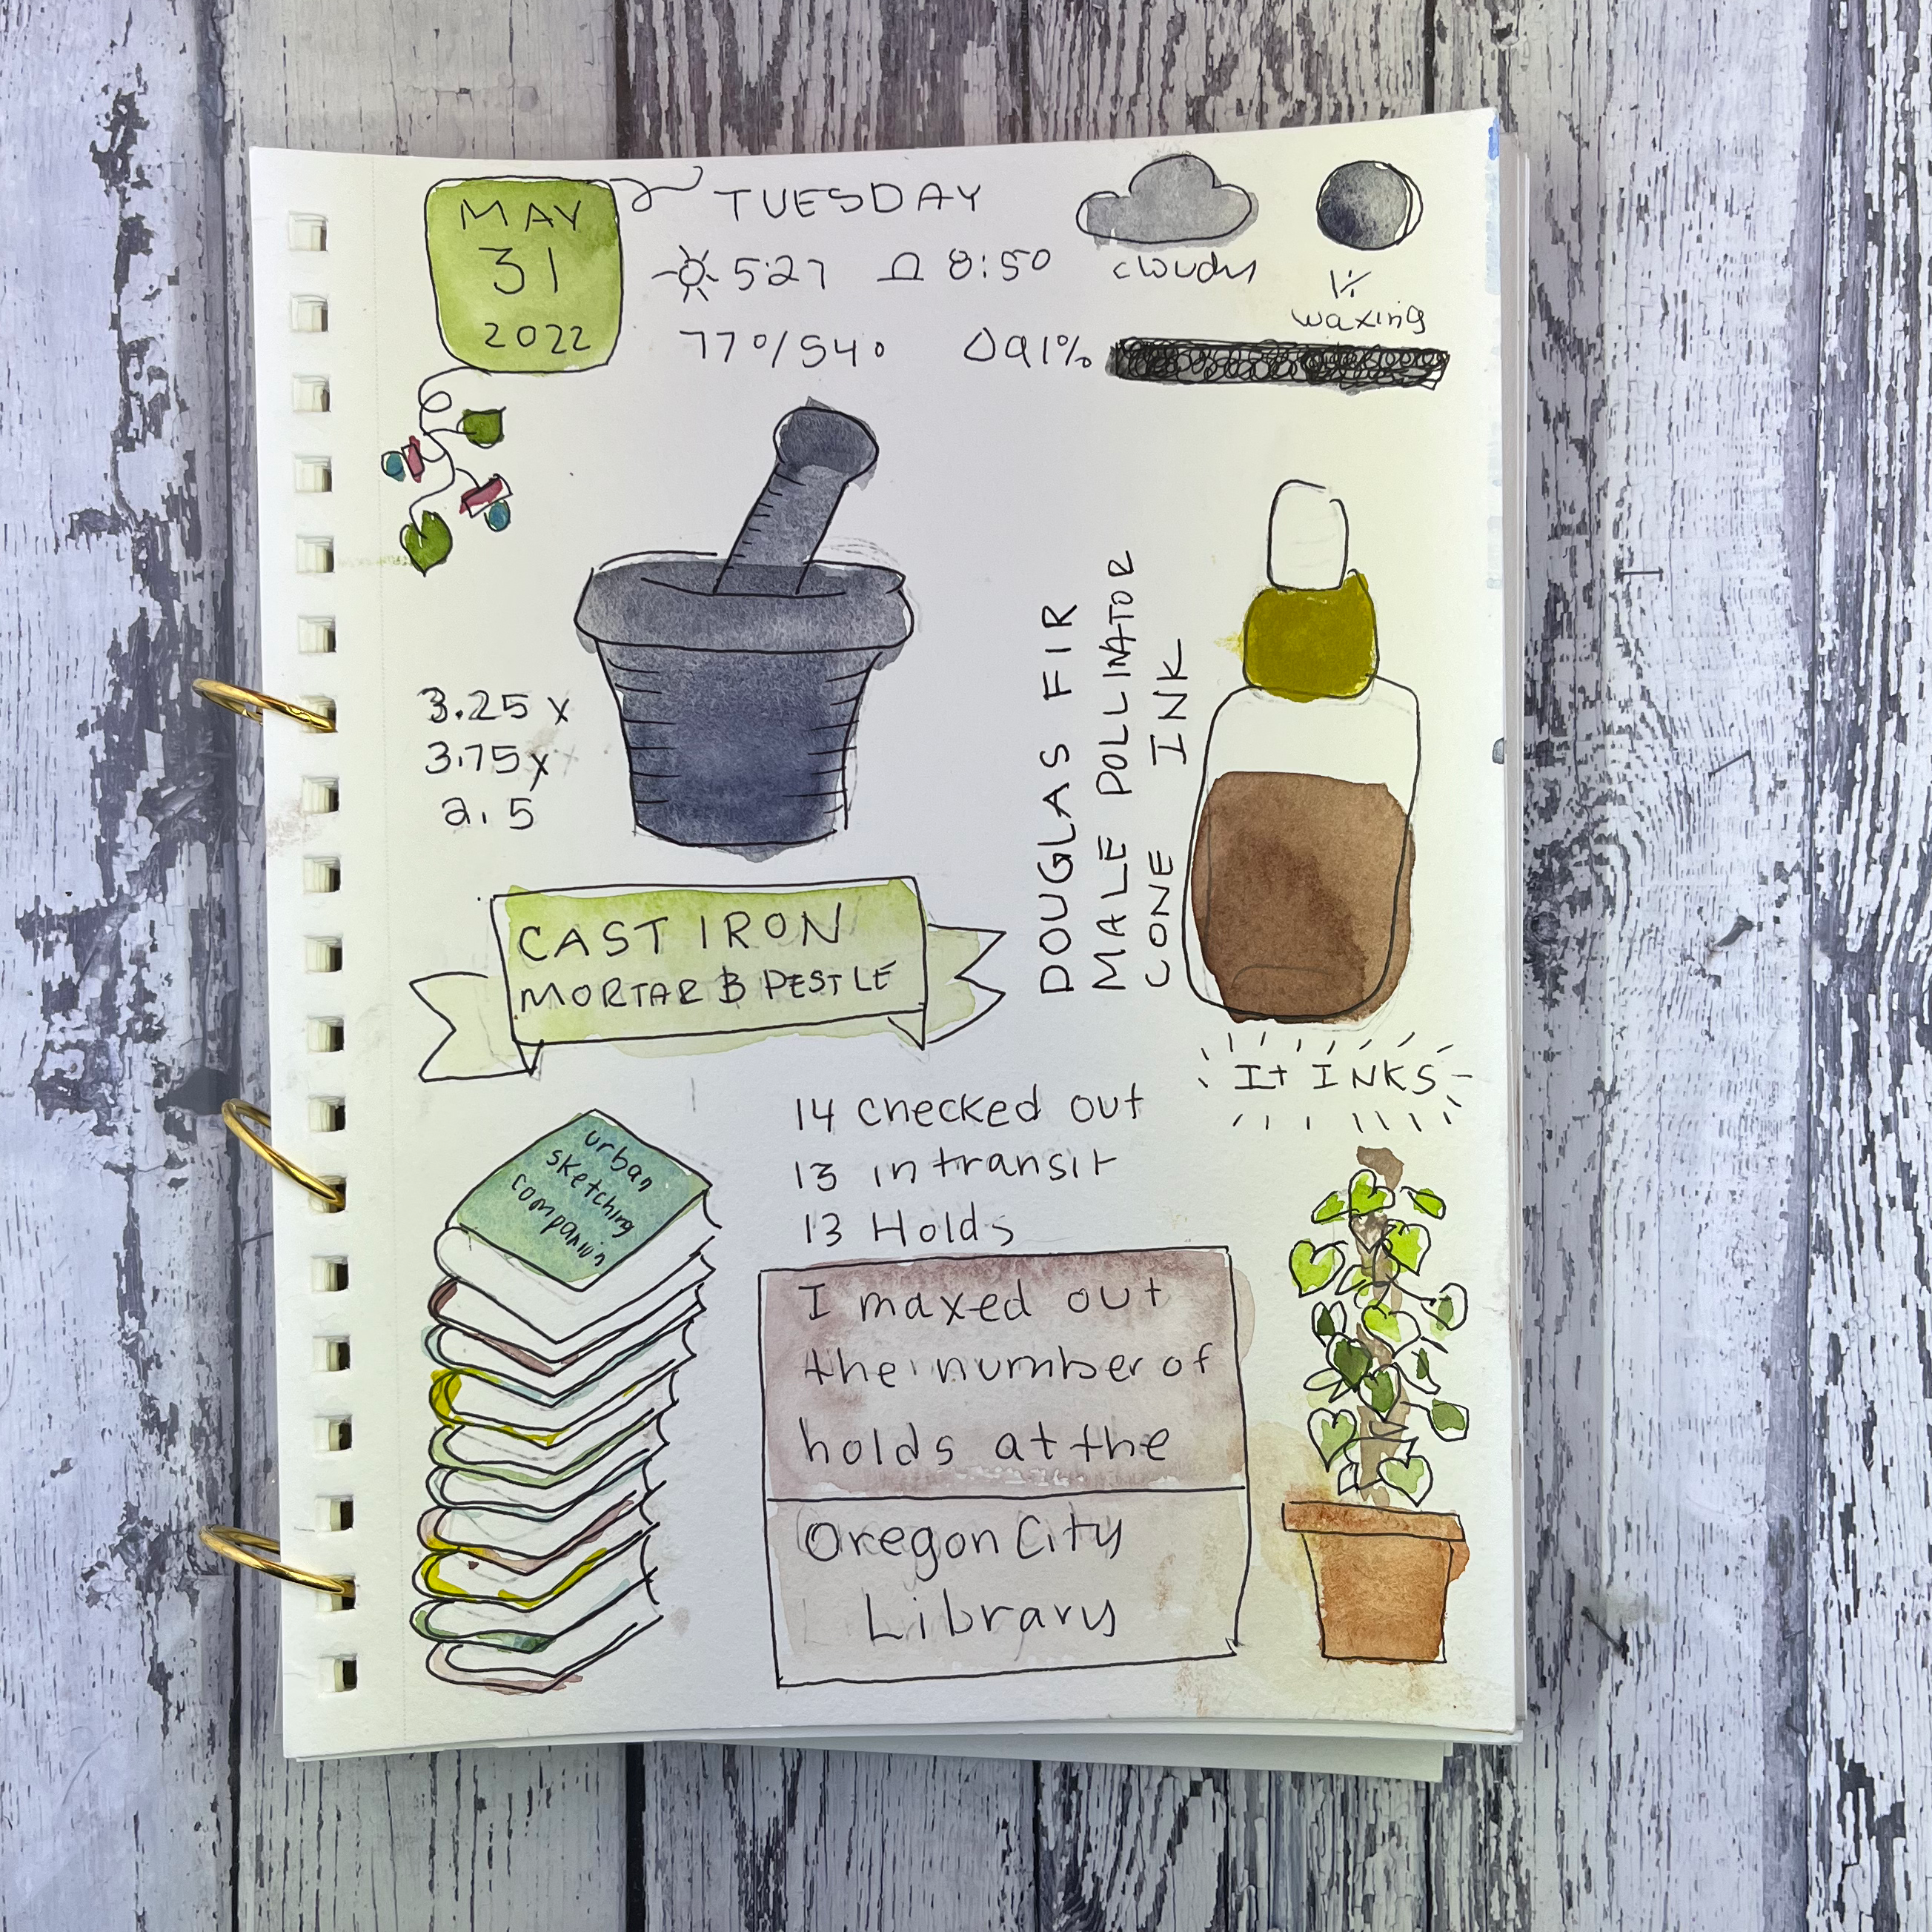 MAY
31
2022
TUESDAY
5:27 8:50
77°/54° 91%
cloudy
1%
waxing
3.25 x
3.75 x
2.5
CAST IRON
MORTAR & PESTLE
DOUGLAS FIR
MALE POLLINATOR
CONE INK
It INKS
urban
sketching
companion
14 checked out
13 in transit
13 Holds
I maxed out
the number of
holds at the
Oregon City
Library